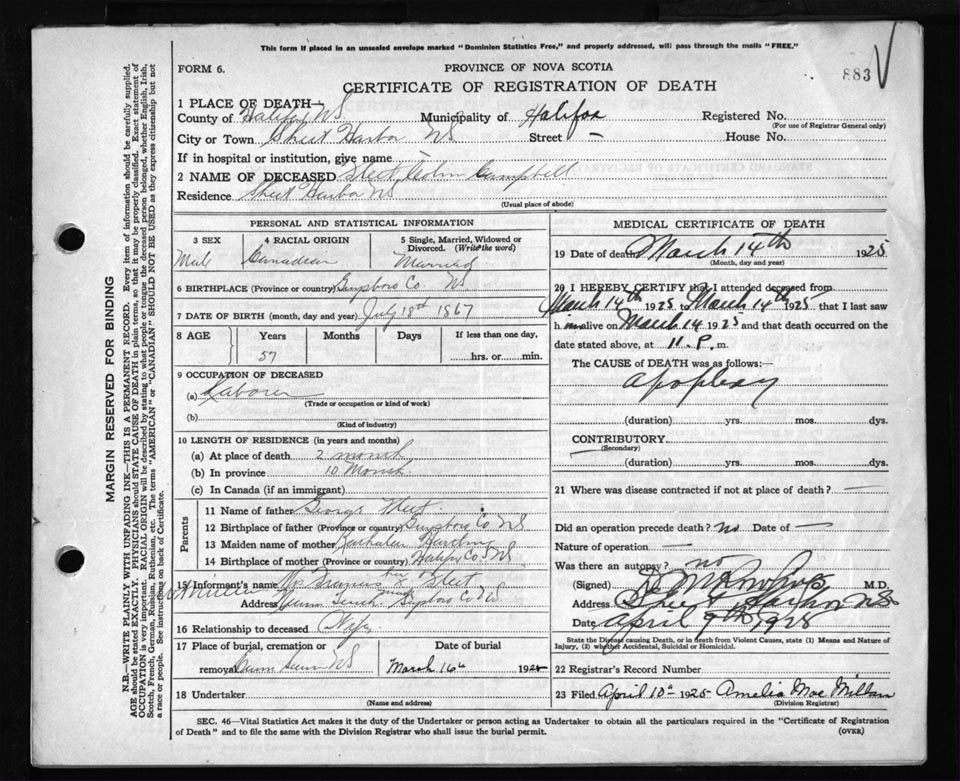 This form if placed in an unsealed envelope marked "Dominion Statistics Free," and properly addressed, will pass through the mails "FREE."
FORM 6.
PROVINCE OF NOVA SCOTIA
883
CERTIFICATE OF REGISTRATION OF DEATH
1 PLACE OF DEATH—
County of Halifax NS Municipality of Halifax Registered No.
(For use of Registrar General only)
City or Town Sheet Harbor NS Street — House No.
If in hospital or institution, give name —
2 NAME OF DECEASED Campbell
Residence Sheet Harbor NS
(Usual place of abode)
PERSONAL AND STATISTICAL INFORMATION
3 SEX 4 RACIAL ORIGIN 5 Single, Married, Widowed or Divorced. (Write the word)
Male Canadian Married
6 BIRTHPLACE (Province or country) Guysboro Co. NS
7 DATE OF BIRTH (month, day and year) July 18th 1867
8 AGE Years Months Days If less than one day,
57 hrs. or min.
9 OCCUPATION OF DECEASED
(a) Laborer
(Trade or occupation or kind of work)
(b)
(Kind of industry)
10 LENGTH OF RESIDENCE (in years and months)
(a) At place of death 2 month
(b) In province 10 Month
(c) In Canada (if an immigrant)
Parents
11 Name of father George
12 Birthplace of father (Province or country) Guysboro Co NS
13 Maiden name of mother
14 Birthplace of mother (Province or country) Halifax Co NS
15 Informant's name Mrs
Address Guysboro Co NS
16 Relationship to deceased Wife
17 Place of burial, cremation or Date of burial
removal NS March 16th 1925
18 Undertaker
(Name and address)
MEDICAL CERTIFICATE OF DEATH
19 Date of death March 14th 1925
(Month, day and year)
20 I HEREBY CERTIFY that I attended deceased from
March 14th 1925 to March 14th 1925 that I last saw
him alive on March 14 1925 and that death occurred on
date stated above, at 11. P. m.
The CAUSE OF DEATH was as follows:—
apoplexy
(duration) yrs. mos. dys.
CONTRIBUTORY
(Secondary)
(duration) yrs. mos. dys.
21 Where was disease contracted if not at place of death? —
Did an operation precede death? no Date of —
Nature of operation —
Was there an autopsy? no
(Signed) M.D.
Address Sheet Harbor NS
Date April 9th 1925
State the Disease causing Death, or in death from Violent Causes, state (1) Means and Nature of Injury, (2) whether Accidental, Suicidal or Homicidal.
22 Registrar's Record Number
23 Filed April 10th 1925 Amelia
(Division Registrar)
SEC. 46—Vital Statistics Act makes it the duty of the Undertaker or person acting as Undertaker to obtain all the particulars required in the "Certificate of Registration
of Death" and to file the same with the Division Registrar who shall issue the burial permit.
(OVER)
MARGIN RESERVED FOR BINDING
N.B.—WRITE PLAINLY WITH UNFADING INK—THIS IS A PERMANENT RECORD. Every item of information should be carefully supplied.
AGE should be stated EXACTLY. PHYSICIANS should STATE CAUSE OF DEATH in plain terms, so that it may be properly classified. Exact statement of
OCCUPATION is very important. RACIAL ORIGIN will be described by stating to what people or tongue the deceased person belonged, whether English, Irish,
Scotch, French, German, Russian, Ruthenian, etc. The terms "AMERICAN" or "CANADIAN" SHOULD NOT BE USED as they express citizenship but not
a race or people. See instructions on back of Certificate.